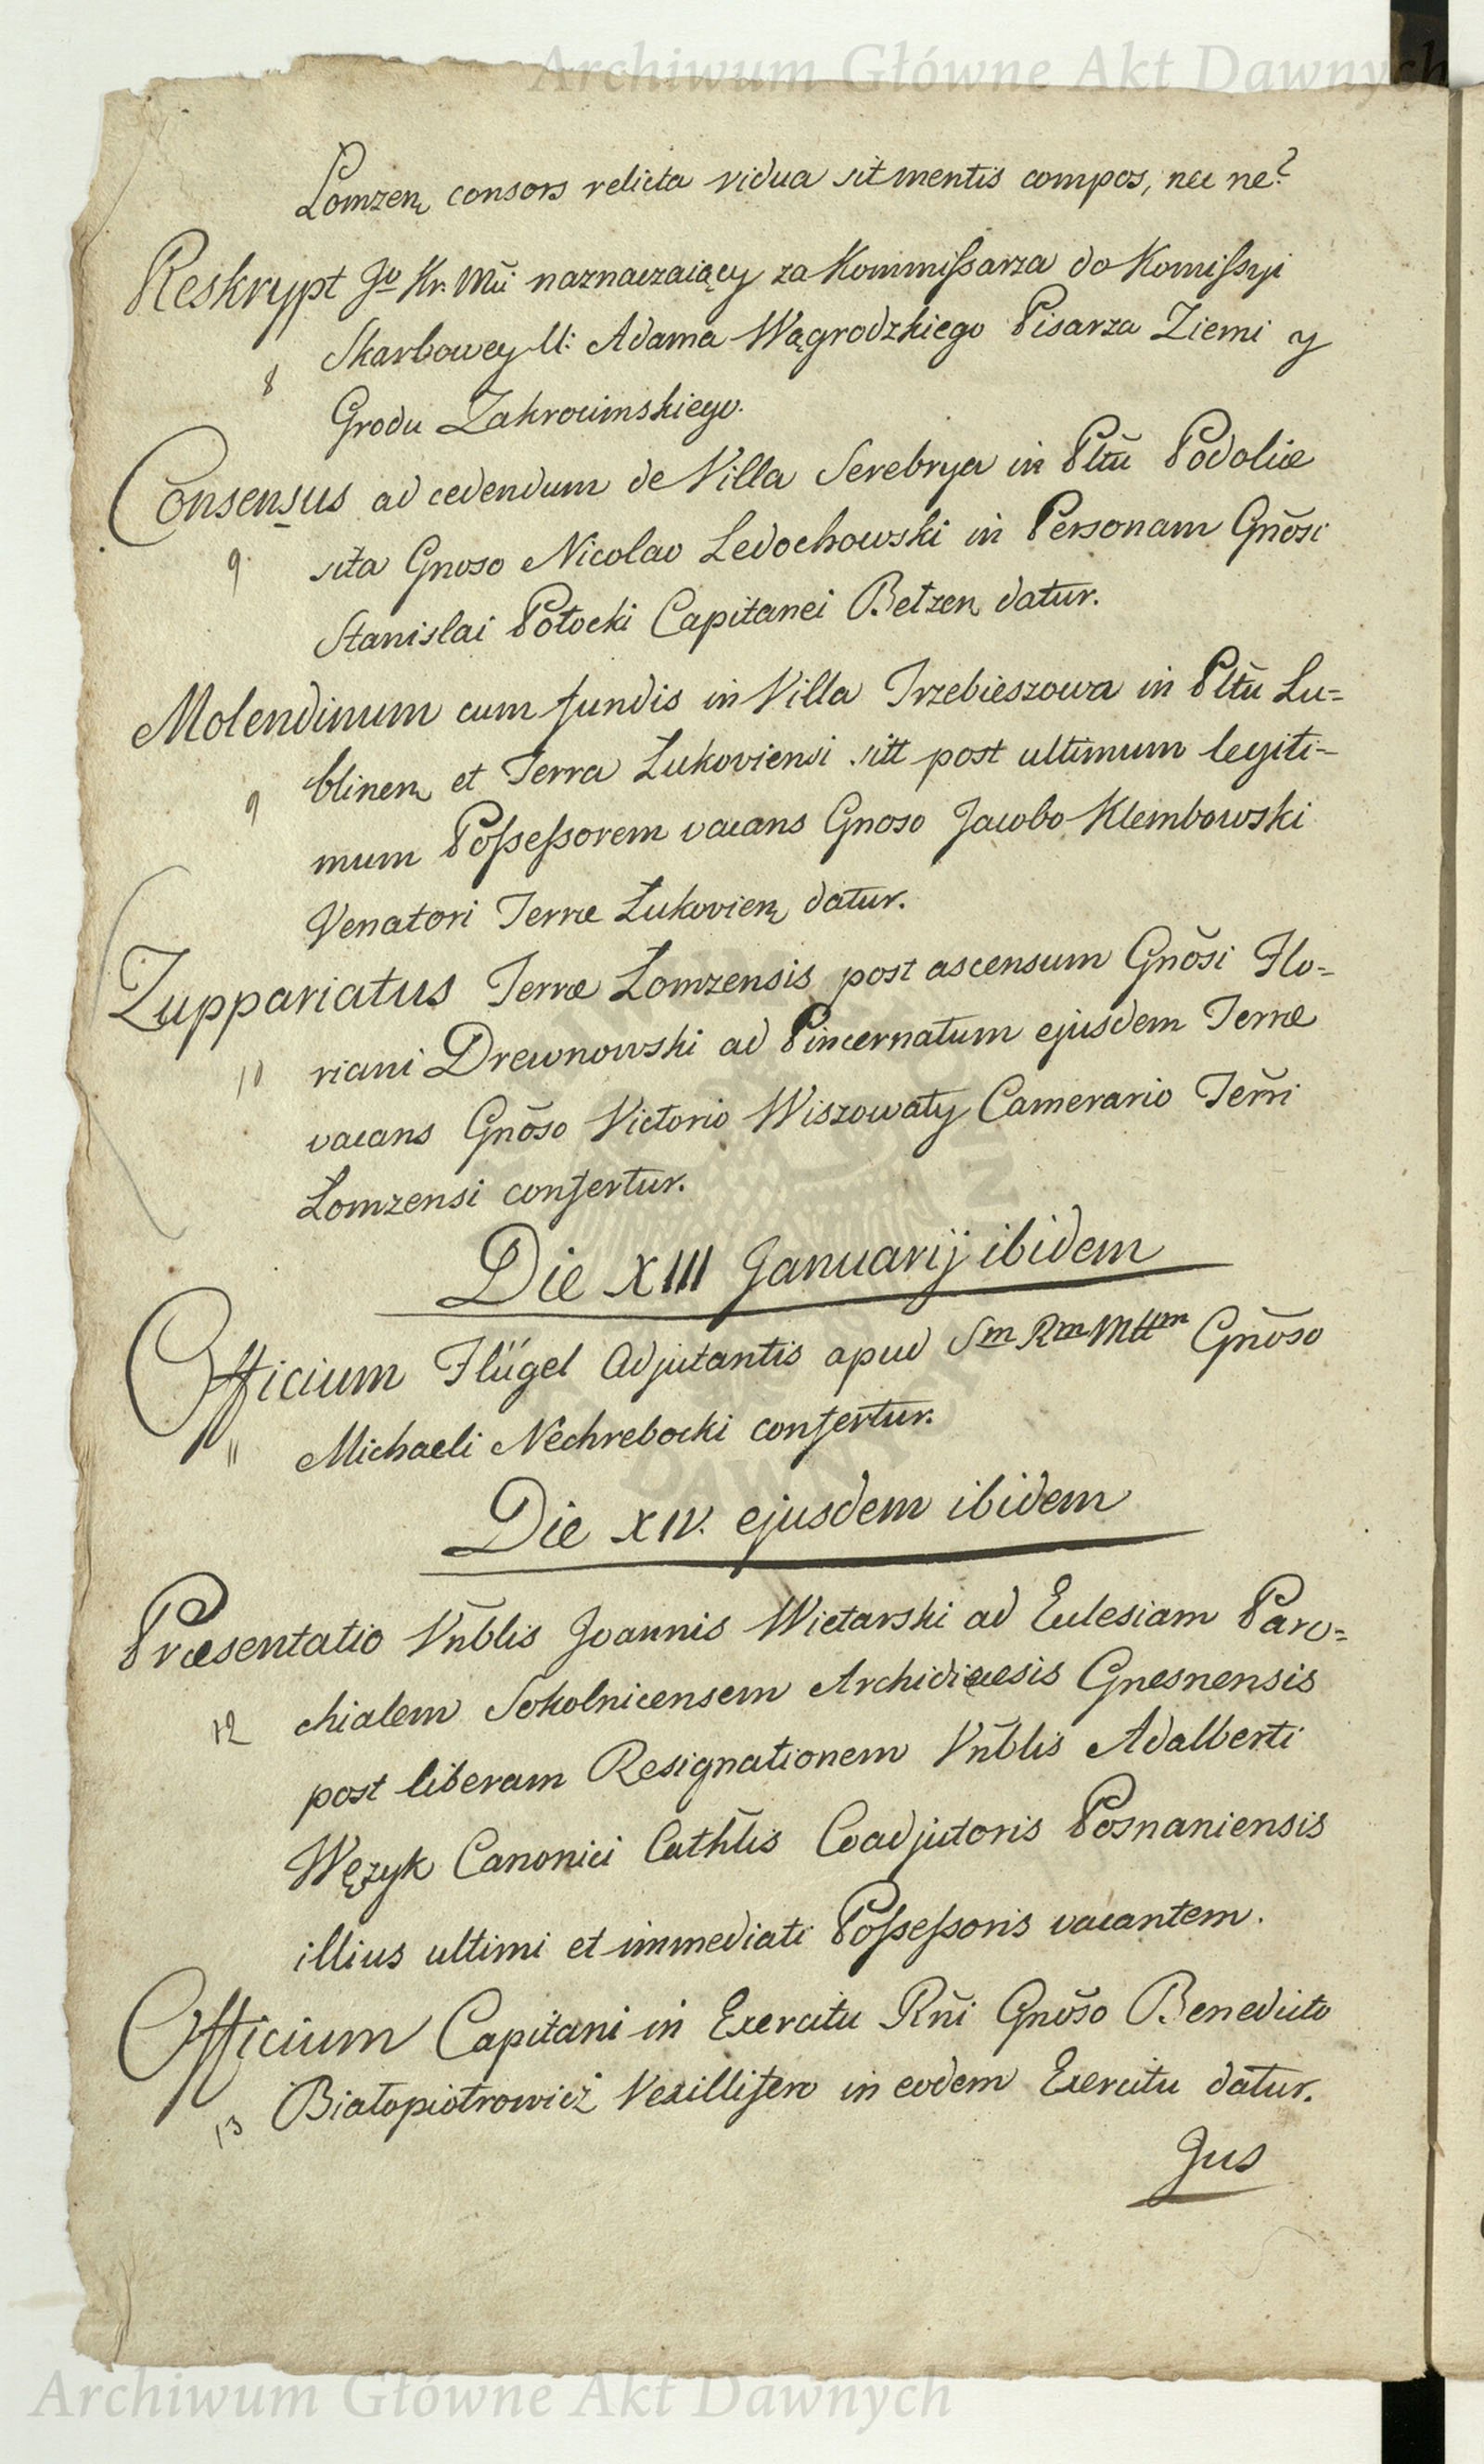 Archiwum Główne Akt Dawnych
Lomzen consors relicta vidua sit mentis compos, nec ne?
Reskrypt Jo Kr. Mci naznaczaiący za Kommissarza do Komissyi
8 Skarbowey U: Adama Wągrodzkiego Pisarza Ziemi y
Grodu Zakrocimskiego.
Consensus ad cedendum de Villa Serebrya in Pltũ Podoliæ
9. sita Gnoso Nicolao Ledochowski in Personam Gnõsi
Stanislai Potocki Capitanei Betzen datur.
Molendinum cum fundis in Villa Trzebieszowa in Pltũ Lu=
9 blinen et Terra Łukoviensi sitt post ultimum legiti-
mum Possessorem vacans Gnoso Jacobo Klembowski
Venatori Terræ Łukovien datur.
Zuppariatus Terræ Łomzensis post ascensum Gnõsi Flo=
10 riani Drewnowski ad Pincernatum ejusdem Terræ
vacans Gnõso Victorio Wiszowaty Camerario Terři
Łomzensi confertur.
Die XIII Januarij ibidem
Officium Flügel Adjutantis apud Sm Rm Mttm Gnõso
11 Michaeli Nechrebocki confertur.
Die XIV. ejusdem ibidem
Præsentatio Vnblis Joannis Wietarski ad Ecclesiam Paro=
12 chialem Sokolnicensem Archidiæcesis Gnesnensis
post liberam Resignationem Vnblis Adalberti
Wężyk Canonici Cathlis Coadjutoris Posnaniensis
illius ultimi et immediati Possessoris vacantem.
Officium Capitani in Exercitu Rñi Gnõso Benedicto
13 Białopiotrowicz Vexillifero in eodem Exercitu datur.
Jus
Archiwum Główne Akt Dawnych